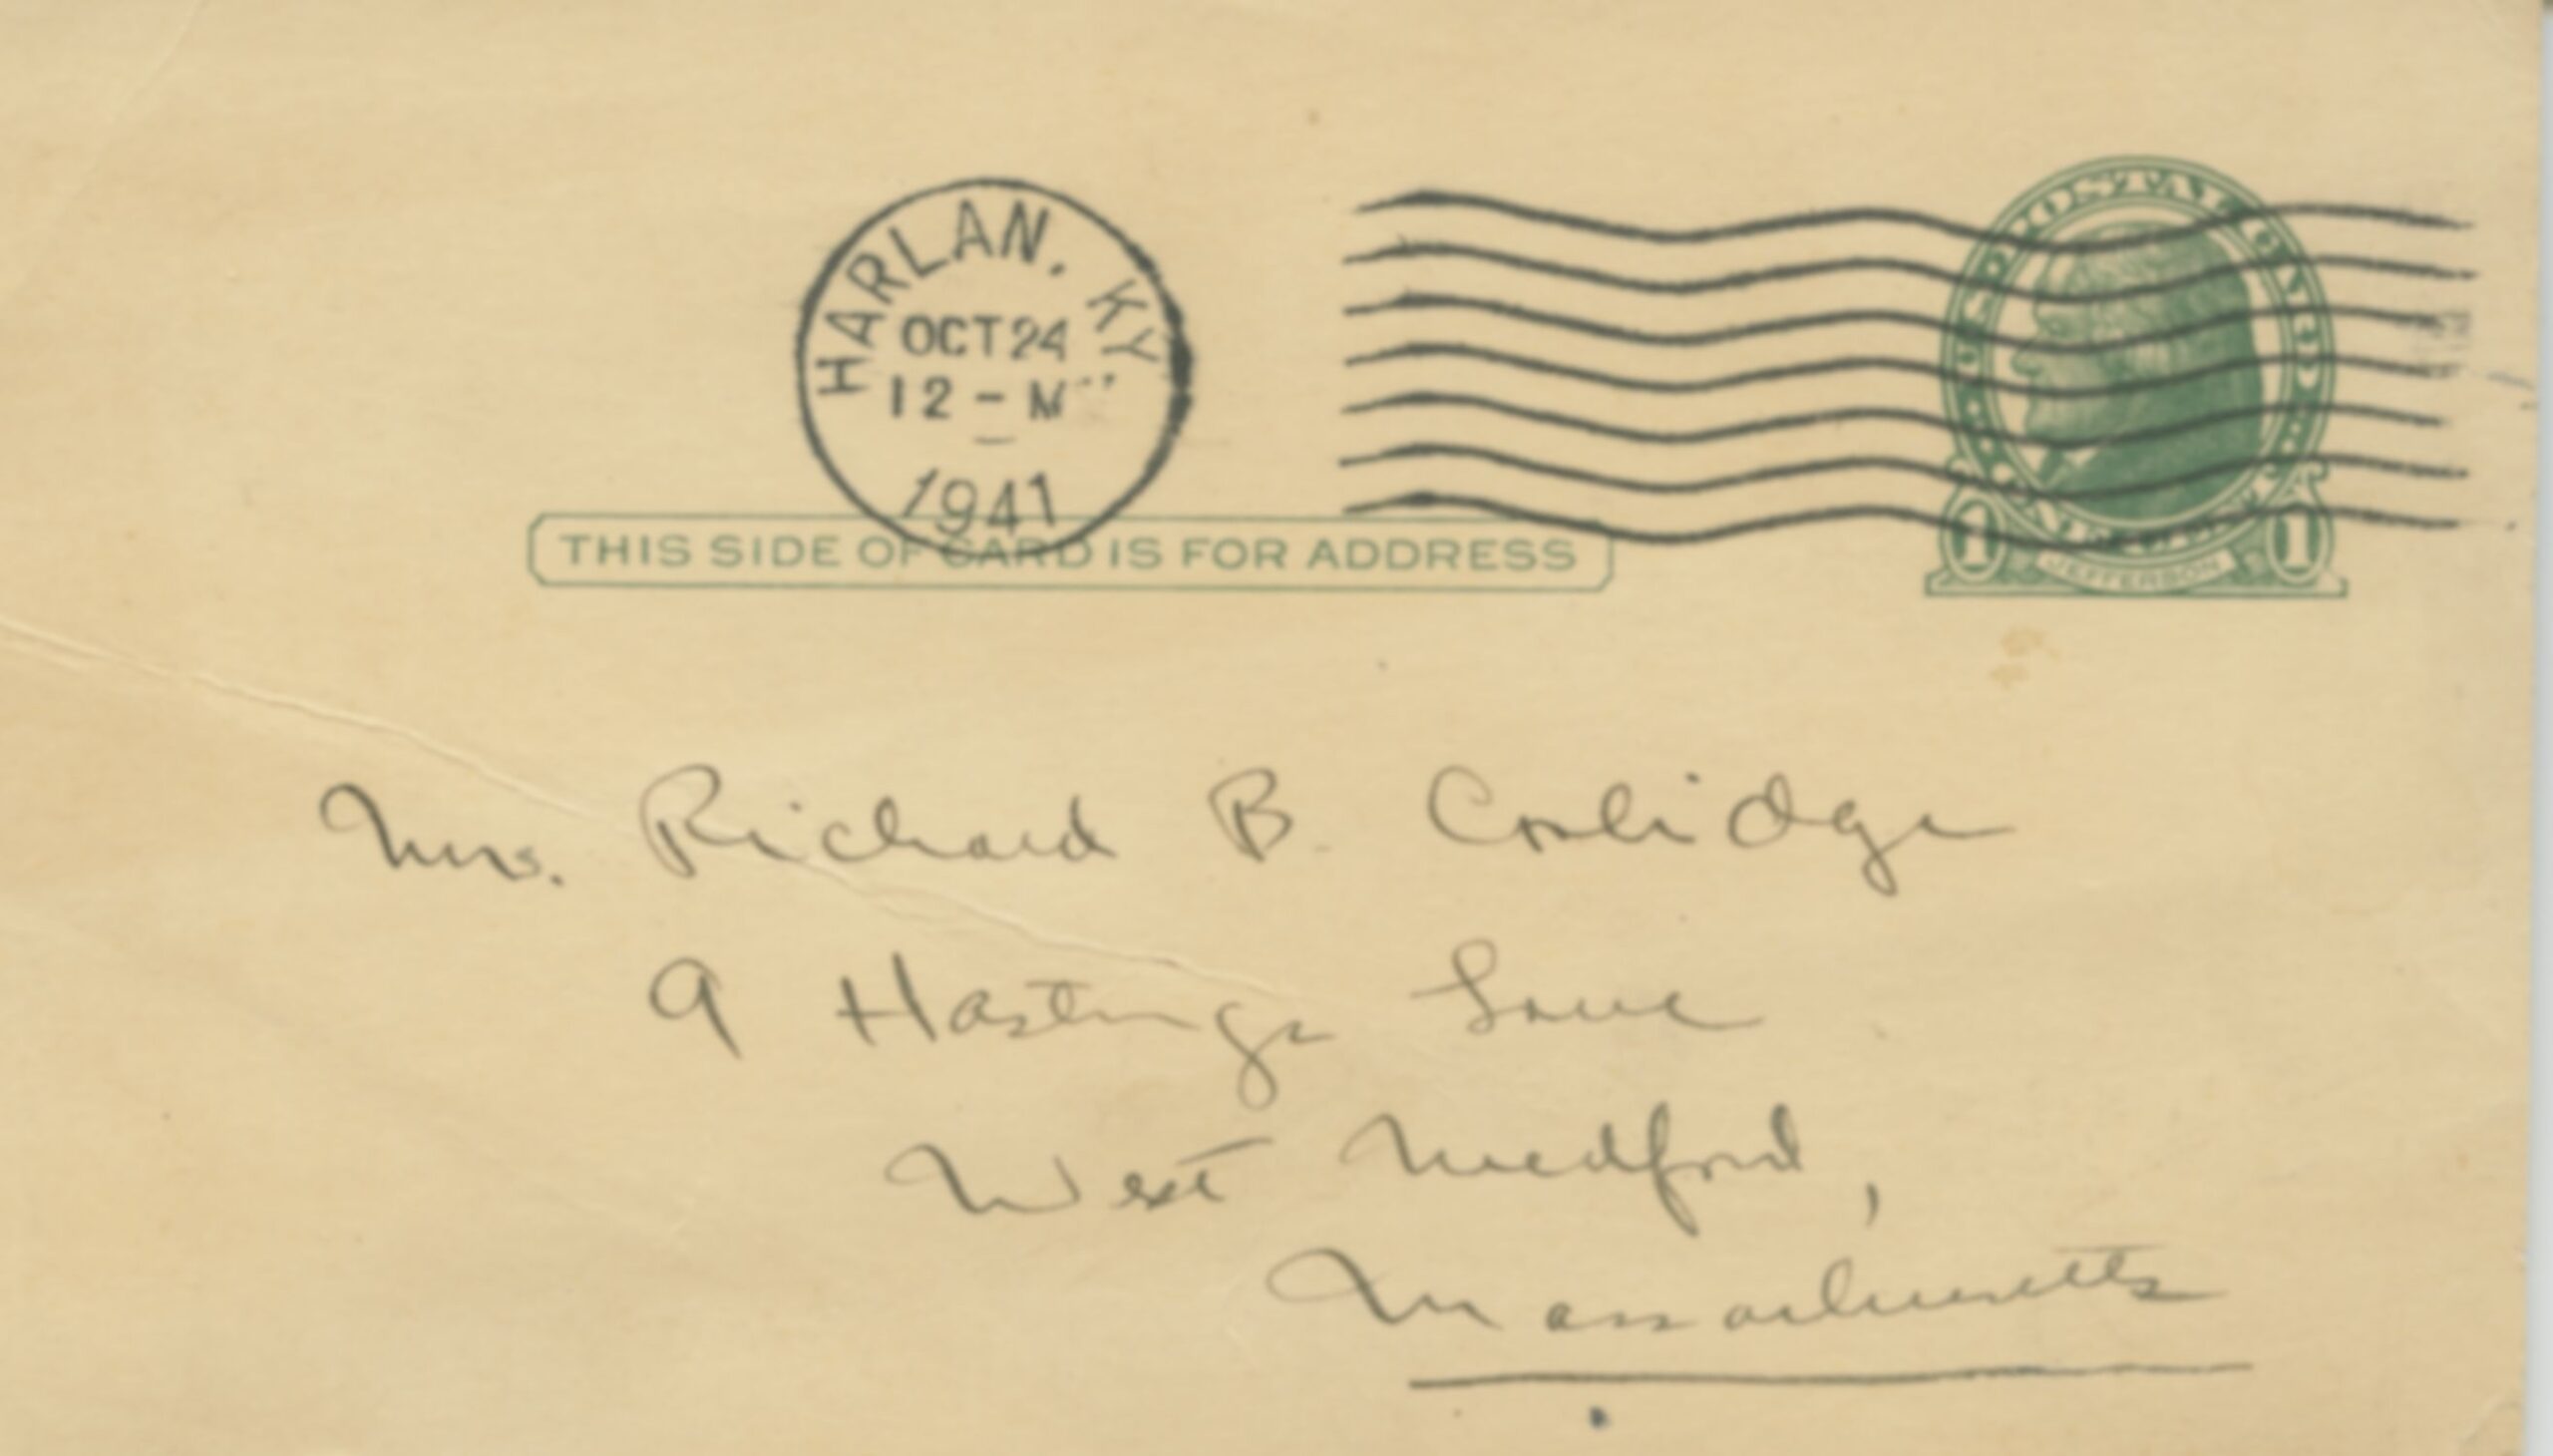 HARLAN, KY
OCT 24
12 - M
1941
THIS SIDE OF CARD IS FOR ADDRESS
1 JEFFERSON 1
Mrs. Richard B. Coolidge
9 Hastings Lane
West Medford,
Massachusetts